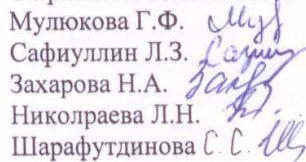 Мулюкова Г.Ф.
Сафиуллин Л.З.
Захарова Н.А.
Николраева Л.Н.
Шарафутдинова С.С.